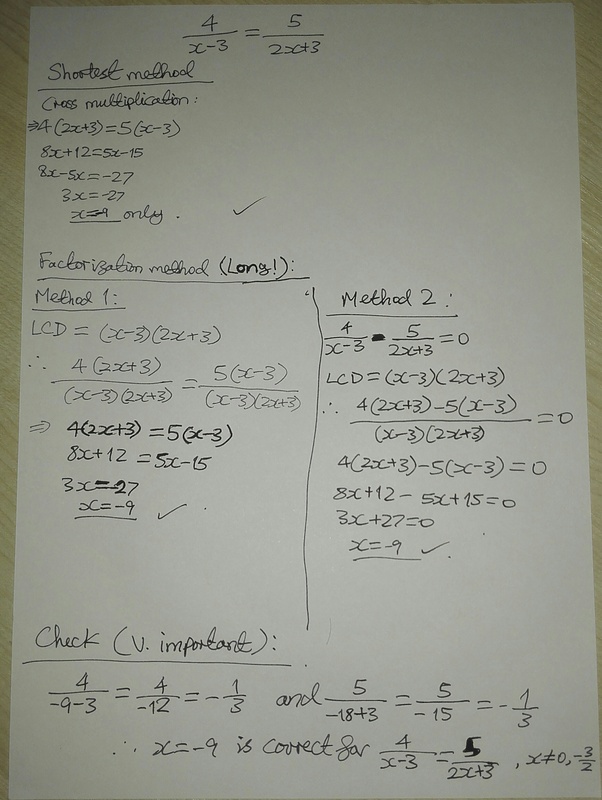 4/(x-3) = 5/(2x+3)
Shortest method
Cross multiplication:
⇒4(2x+3)=5(x-3)
8x+12=5x-15
8x-5x=-27
3x=-27
x=-9 only. ✓
Factorization method (Long!):
Method 1:
LCD = (x-3)(2x+3)
∴ 4(2x+3)/((x-3)(2x+3)) = 5(x-3)/((x-3)(2x+3))
⇒ 4(2x+3)=5(x-3)
8x+12=5x-15
3x=-27
x=-9 ✓
Method 2:
4/(x-3) - 5/(2x+3) = 0
LCD=(x-3)(2x+3)
∴ (4(2x+3)-5(x-3))/((x-3)(2x+3)) = 0
4(2x+3)-5(x-3)=0
8x+12-5x+15=0
3x+27=0
x=-9 ✓.
Check (V. important):
4/(-9-3) = 4/(-12) = -1/3 and 5/(-18+3) = 5/(-15) = -1/3
∴ x=-9 is correct for 4/(x-3) = 5/(2x+3), x≠0, -3/2